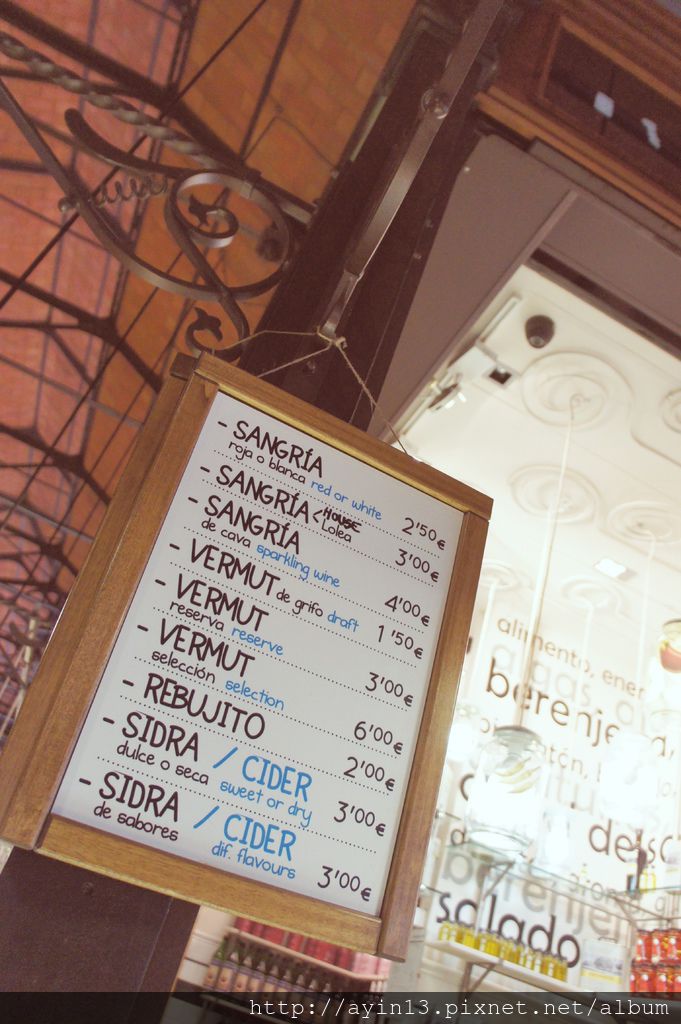 - SANGRÍA
roja o blanca red or white 2'50€
- SANGRÍA < HOUSE Lolea 3'00€
- SANGRÍA
de cava sparkling wine 4'00€
- VERMUT de grifo draft 1'50€
- VERMUT
reserva reserve 3'00€
- VERMUT
selección selection 6'00€
- REBUJITO 2'00€
- SIDRA / CIDER
dulce o seca sweet or dry 3'00€
- SIDRA / CIDER
de sabores dif. flavours 3'00€
alimento, ener
algas,
berenjena,
berenjen
salado
http://ayin13.pixnet.net/album